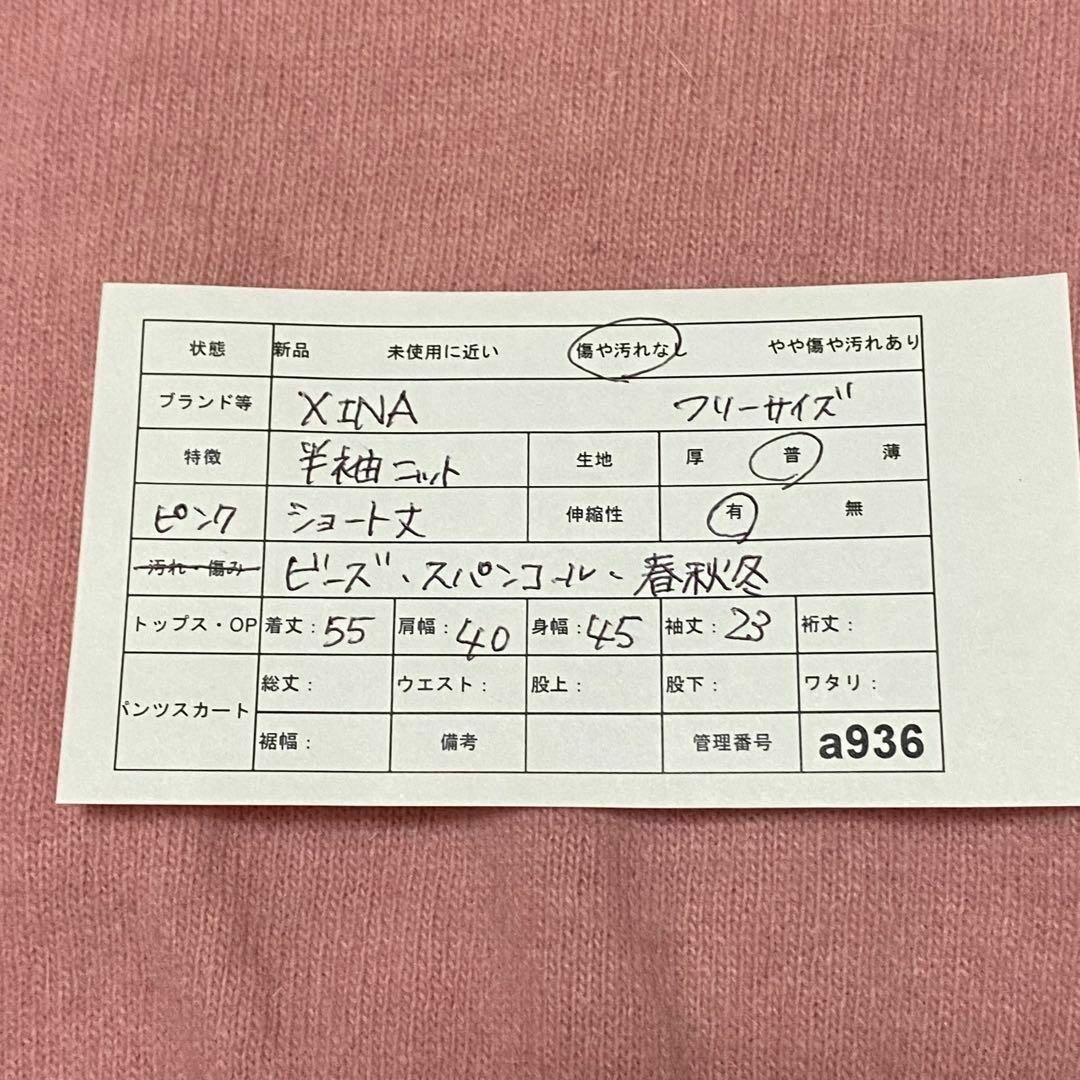 状態 新品 未使用に近い 傷や汚れなし やや傷や汚れあり
ブランド等 XINA フリーサイズ
特徴 半袖ニット 生地 厚 普 薄
ピンク ショート丈 伸縮性 有 無
汚れ・傷み ビーズ・スパンコール・春秋冬
トップス・OP 着丈：55 肩幅：40 身幅：45 袖丈：23 裄丈：
パンツスカート 総丈： ウエスト： 股上： 股下： ワタリ：
裾幅： 備考 管理番号 a936